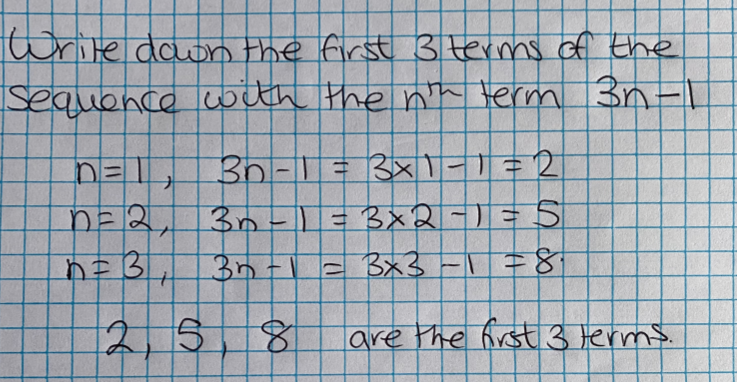 Write down the first 3 terms of the
sequence with the nth term 3n-1
n=1, 3n-1 = 3x1-1 = 2
n=2, 3n-1 = 3x2-1 = 5
n=3, 3n-1 = 3x3-1 = 8.
2, 5, 8 are the first 3 terms.